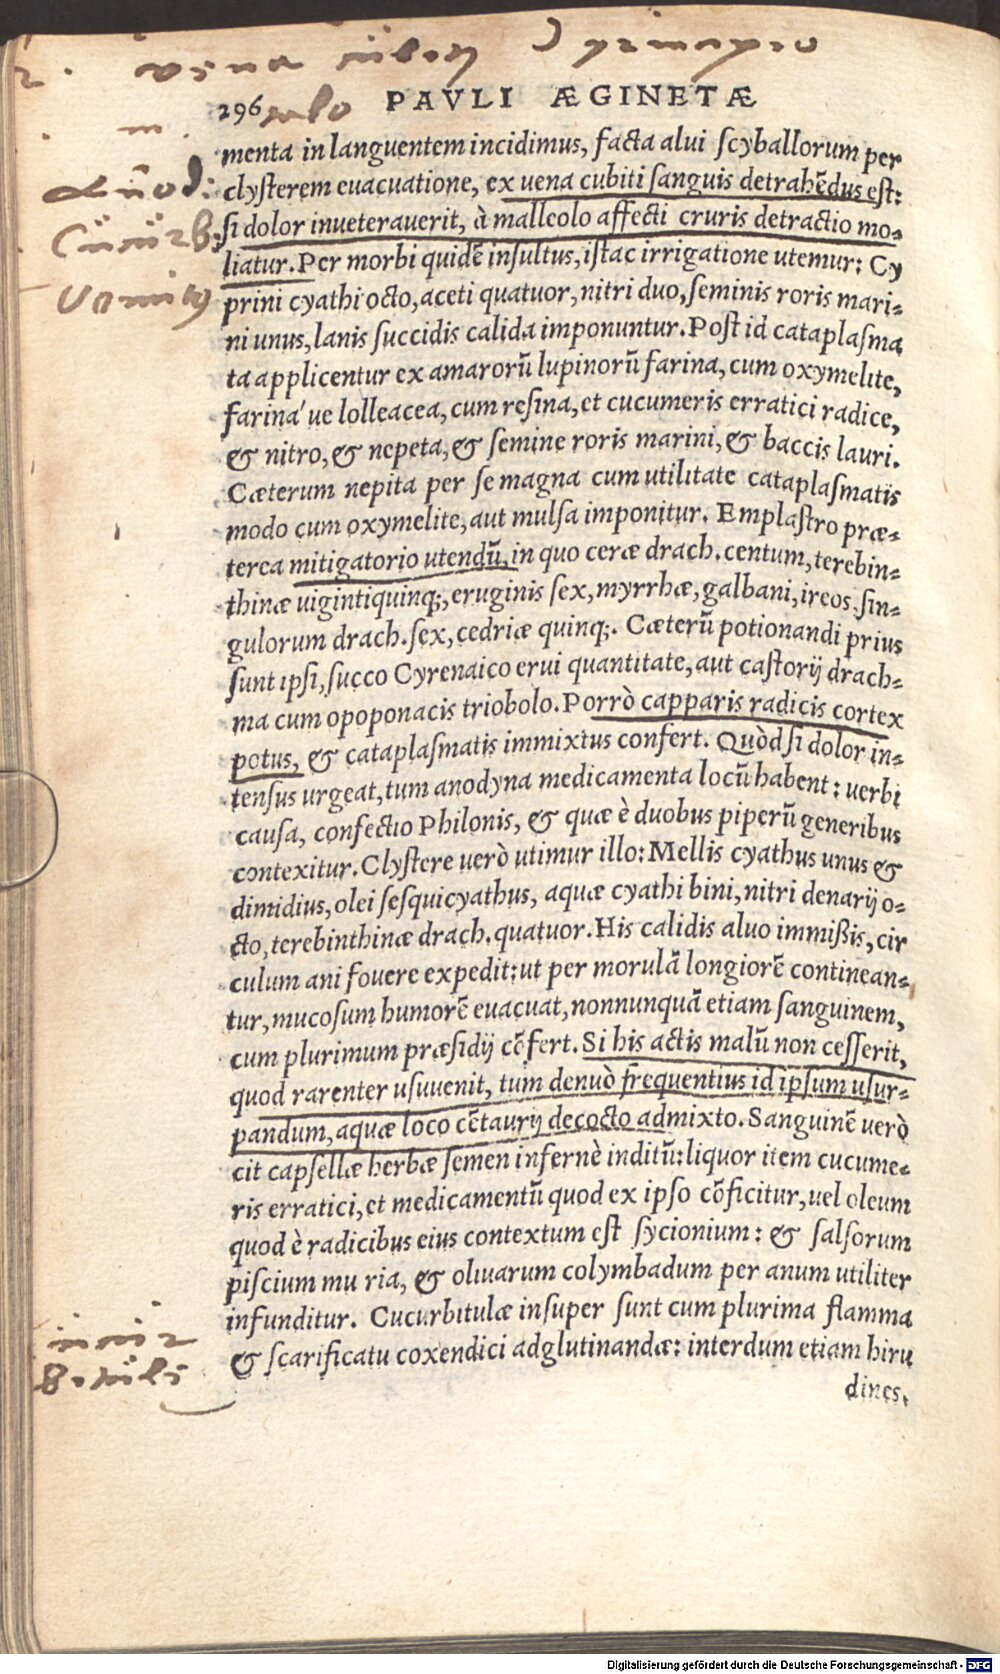 vena cubiti principio
296 malo PAVLI ÆGINETÆ
menta in languentem incidimus, facta alui scyballorum per
clysterem euacuatione, ex uena cubiti sanguis detrahēdus est:
si dolor inueterauerit, à malleolo affecti cruris detractio mo-
liatur. Per morbi quidē insultus, istac irrigatione utemur: Cy
prini cyathi octo, aceti quatuor, nitri duo, seminis roris mari-
ni unus, lanis succidis calida imponuntur. Post id cataplasma
ta applicentur ex amarorū lupinorū farina, cum oxymelite,
farina´ue lolleacea, cum resina, et cucumeris erratici radice,
& nitro, & nepeta, & semine roris marini, & baccis lauri.
Cæterum nepita per se magna cum utilitate cataplasmatis
modo cum oxymelite, aut mulsa imponitur. Emplastro præ-
terea mitigatorio utendū, in quo ceræ drach. centum, terebin-
thinæ uigintiquinq;, eruginis sex, myrrhæ, galbani, ireos, sin-
gulorum drach. sex, cedriæ quinq;. Cæterū potionandi prius
sunt ipsi, succo Cyrenaico erui quantitate, aut castorij drach-
ma cum opoponacis triobolo. Porrò capparis radicis cortex
potus, & cataplasmatis immixtus confert. Quòd si dolor in-
tensus urgeat, tum anodyna medicamenta locū habent: uerbi
causa, confectio Philonis, & quæ è duobus piperū generibus
contexitur. Clystere uerò utimur illo: Mellis cyathus unus &
dimidius, olei sesquicyathus, aquæ cyathi bini, nitri denarij o-
cto, terebinthinæ drach. quatuor. His calidis aluo immißis, cir
culum ani fouere expedit: ut per morulā longiorē continean-
tur, mucosum humorē euacuat, nonnunquā etiam sanguinem,
cum plurimum præsidij cōfert. Si his actis malū non cesserit,
quod rarenter usuuenit, tum denuò frequentius id ipsum usur-
pandum, aquæ loco cētaurij decocto admixto. Sanguinē uerò
cit capsellæ herbæ semen infernè inditū: liquor item cucume-
ris erratici, et medicamentū quod ex ipso cōficitur, uel oleum
quod è radicibus eius contextum est sycionium: & salsorum
piscium mu ria, & oliuarum colymbadum per anum utiliter
infunditur. Cucurbitulæ insuper sunt cum plurima flamma
& scarificatu coxendici adglutinandæ: interdum etiam hiru
dines.
Cucurb:
Vomitus
Digitalisierung gefördert durch die Deutsche Forschungsgemeinschaft - DFG